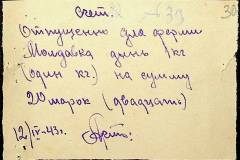 Счет.
30
Отпущено для фермы
Молдавка динь 1 кг
(один кг.) на сумму
20 марок (двадцать)
12/IV-43г.